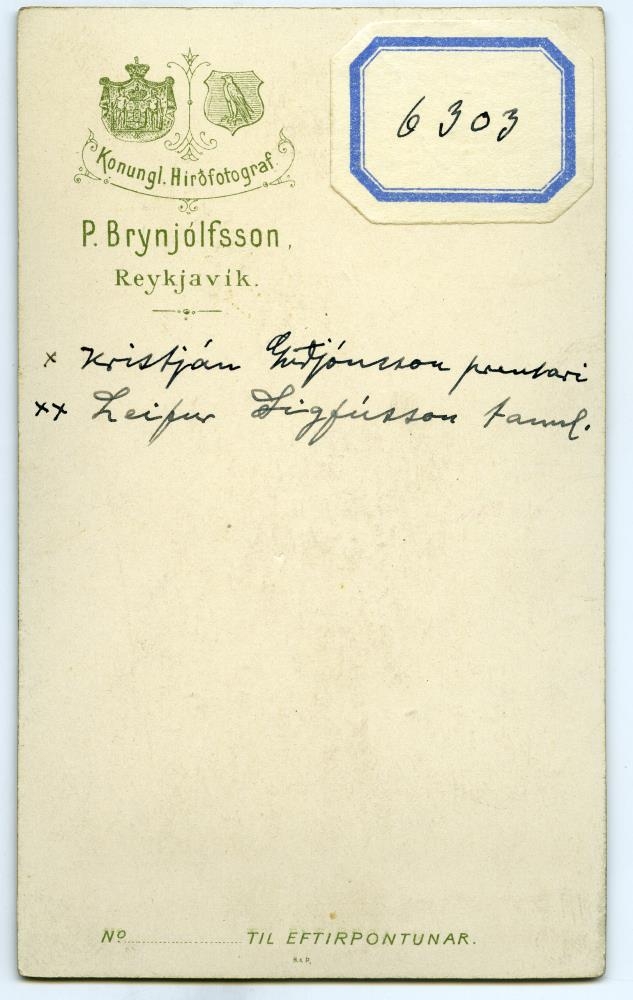 Konungl. Hirðfotograf.
P. Brynjólfsson,
Reykjavík.
6303
x Kristján Guðjónsson prentari
xx Leifur Sigfússon tannl.
No............ TIL EFTIRPÖNTUNAR.